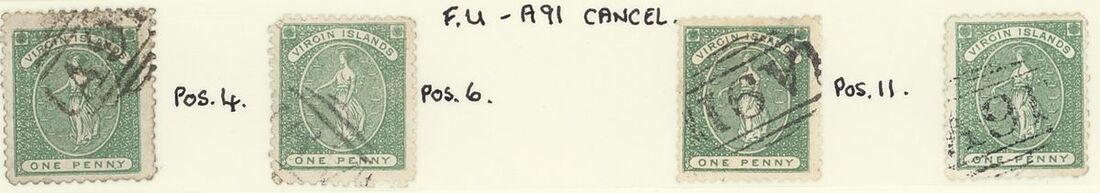 F.U - A91 CANCEL.
VIRGIN ISLANDS
ONE PENNY
Pos. 4.
VIRGIN ISLANDS
ONE PENNY
Pos. 6.
VIRGIN ISLANDS
A91
ONE PENNY
Pos. 11.
VIRGIN ISLANDS
A91
ONE PENNY